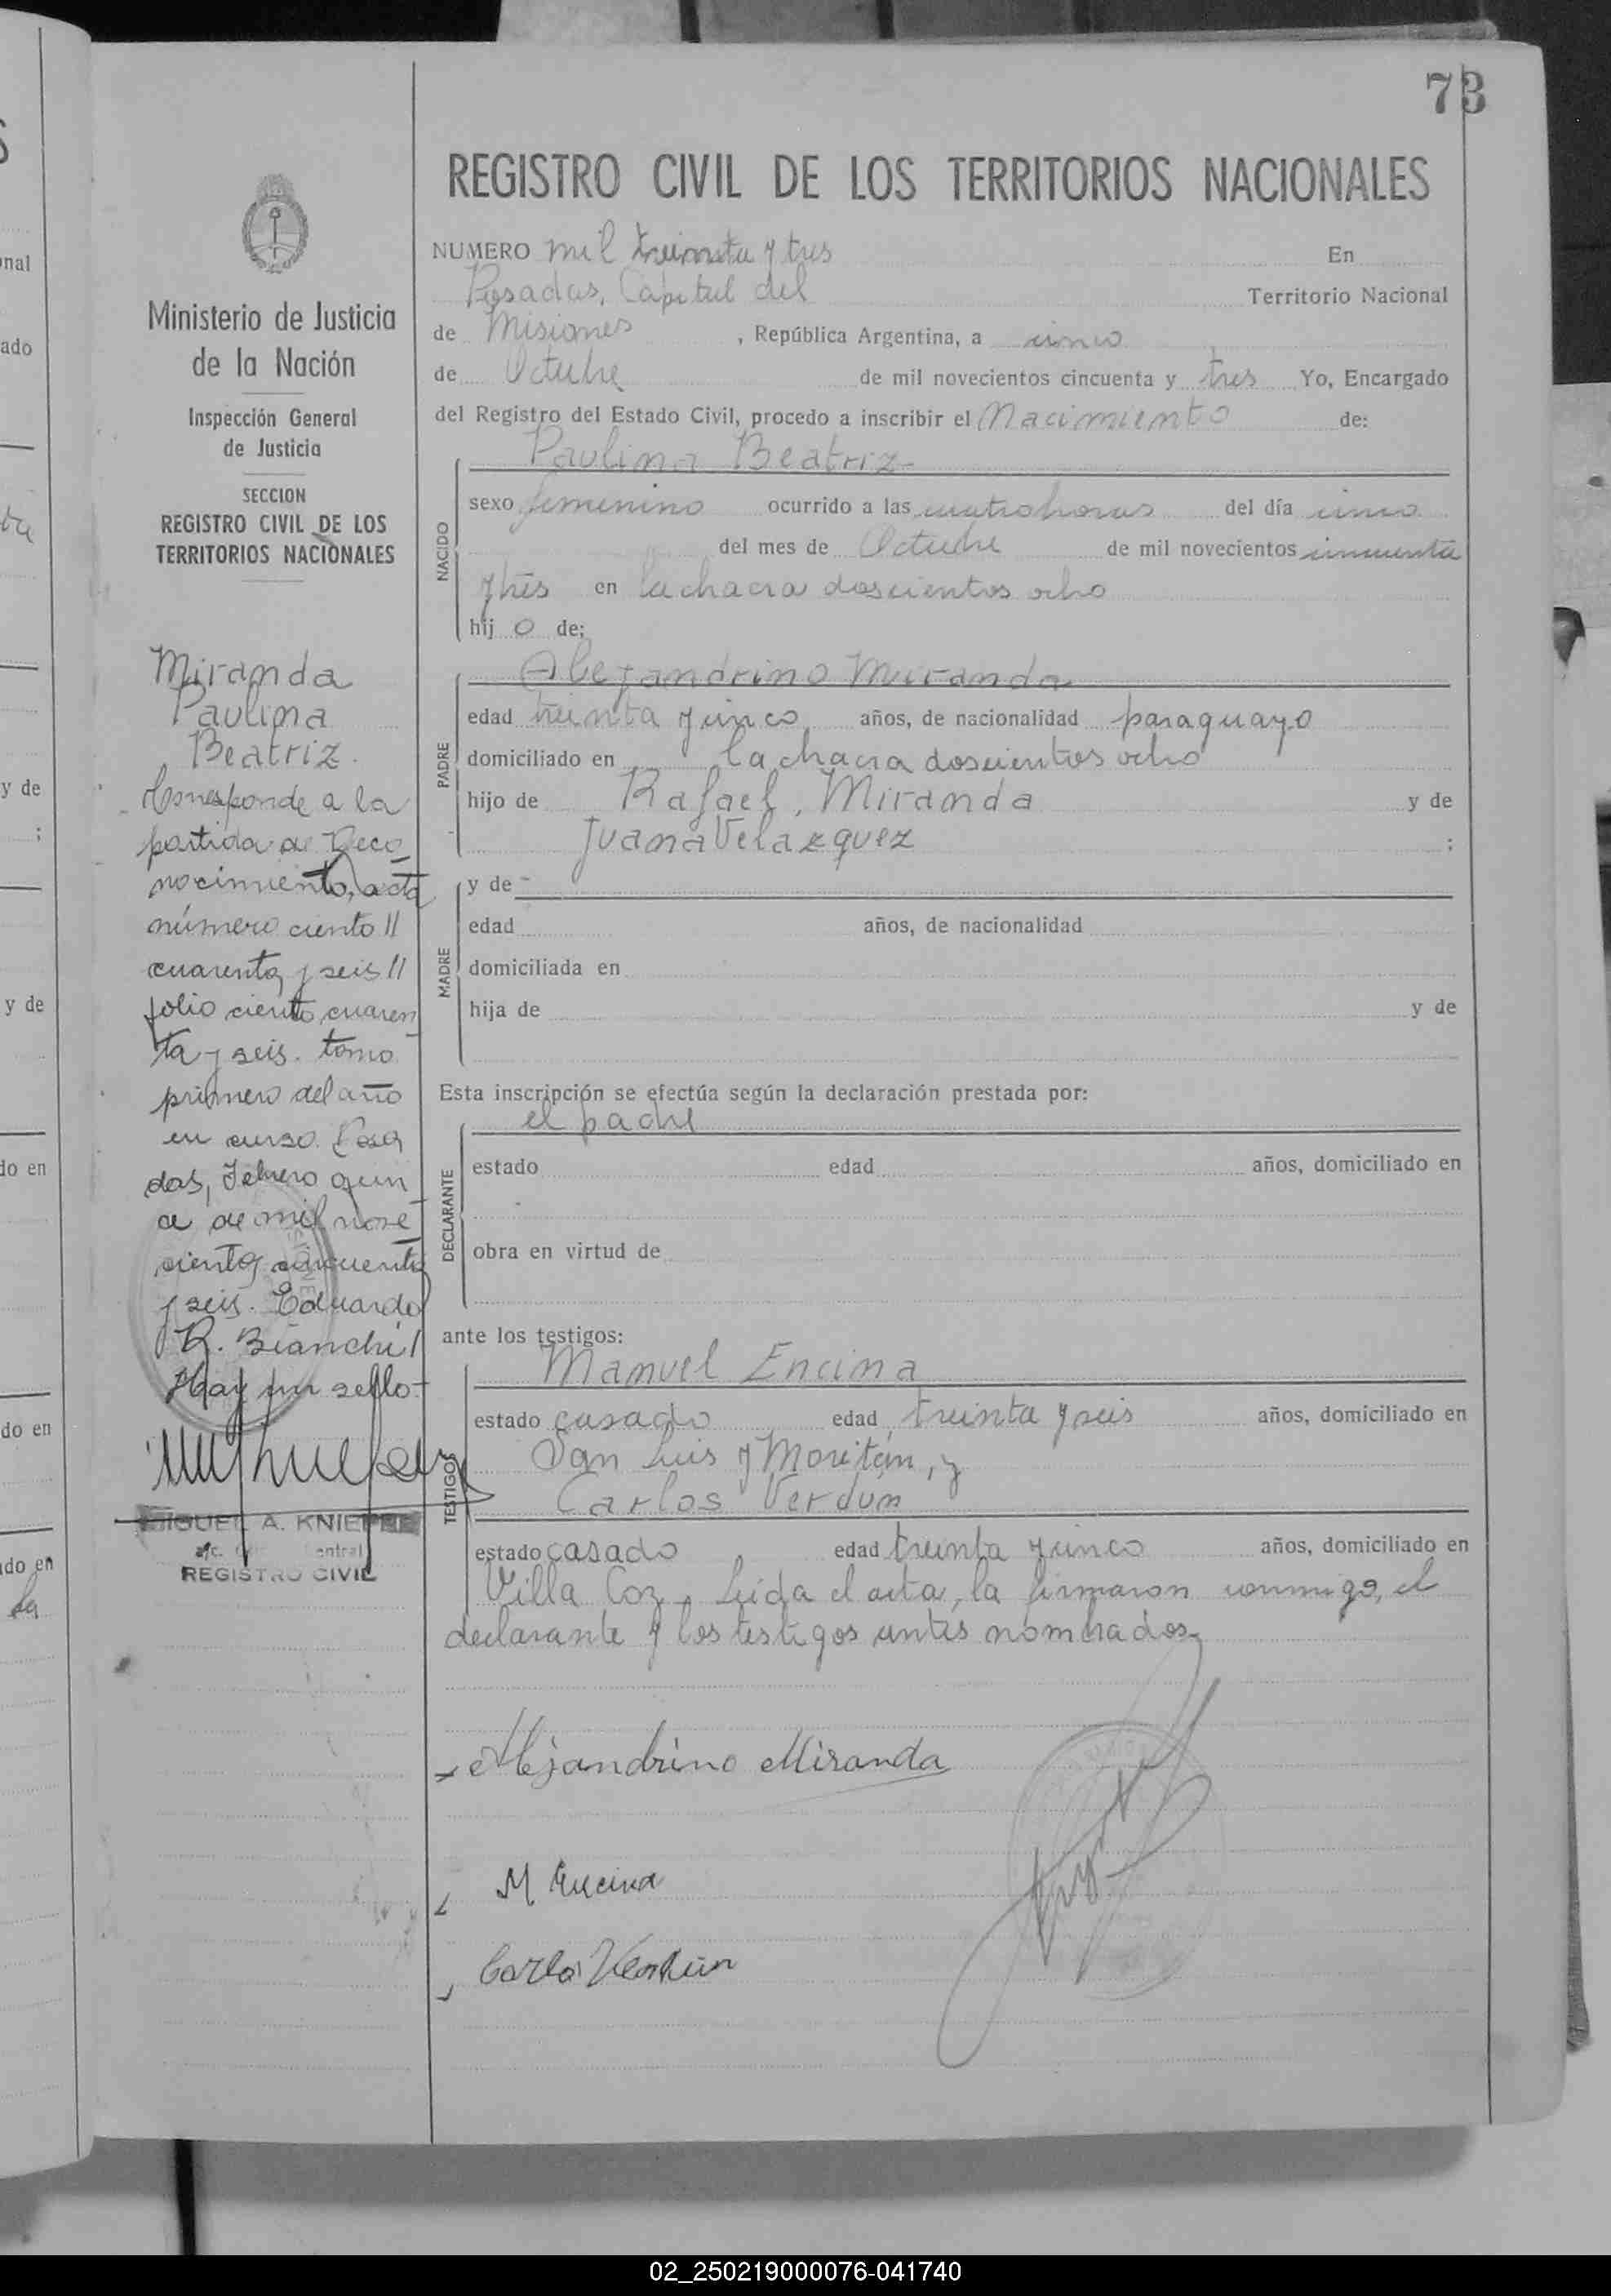 73
REGISTRO CIVIL DE LOS TERRITORIOS NACIONALES
NUMERO mil treinta y tres En
Posadas, Capital del Territorio Nacional
de Misiones , República Argentina, a cinco
de Octubre de mil novecientos cincuenta y tres Yo, Encargado
del Registro del Estado Civil, procedo a inscribir el Nacimiento de:
NACIDO
Paulina Beatriz
sexo femenino ocurrido a las cuatro horas del día cinco
del mes de Octubre de mil novecientos cincuenta
y tres en la chacra doscientos ocho
hij o de:
PADRE
Alejandrino Miranda
edad treinta y cinco años, de nacionalidad paraguayo
domiciliado en la chacra doscientos ocho
hijo de Rafael Miranda y de
Juana Velazquez ;
MADRE
y de
edad años, de nacionalidad
domiciliada en
hija de y de
Esta inscripción se efectúa según la declaración prestada por:
DECLARANTE
el padre
estado edad años, domiciliado en
obra en virtud de
ante los testigos:
TESTIGOS
Manuel Encina
estado casado edad treinta y seis años, domiciliado en
San Luis y Moritán, y
Carlos Verdun
estado casado edad treinta y cinco años, domiciliado en
Villa Coz. Leida el acta, la firmaron conmigo, el
declarante y los testigos antes nombrados.
Alejandrino Miranda
M Encina
Carlos Verdun
Ministerio de Justicia
de la Nación
Inspección General
de Justicia
SECCION
REGISTRO CIVIL DE LOS
TERRITORIOS NACIONALES
Miranda
Paulina
Beatriz.
Corresponde a la
partida de Reco
nocimiento, acta
número ciento //
cuarenta y seis //
folio ciento cuaren
ta y seis. tomo
primero del año
en curso. Posa
das, Febrero quin
ce de mil nove
cientos cincuenta
y seis. Eduardo
R. Bianchi /
Hay un sello.
MIGUEL A. KNIEPPE
REGISTRO CIVIL
nal
ado
y de
;
y de
do en
do en
do en
02_250219000076-041740